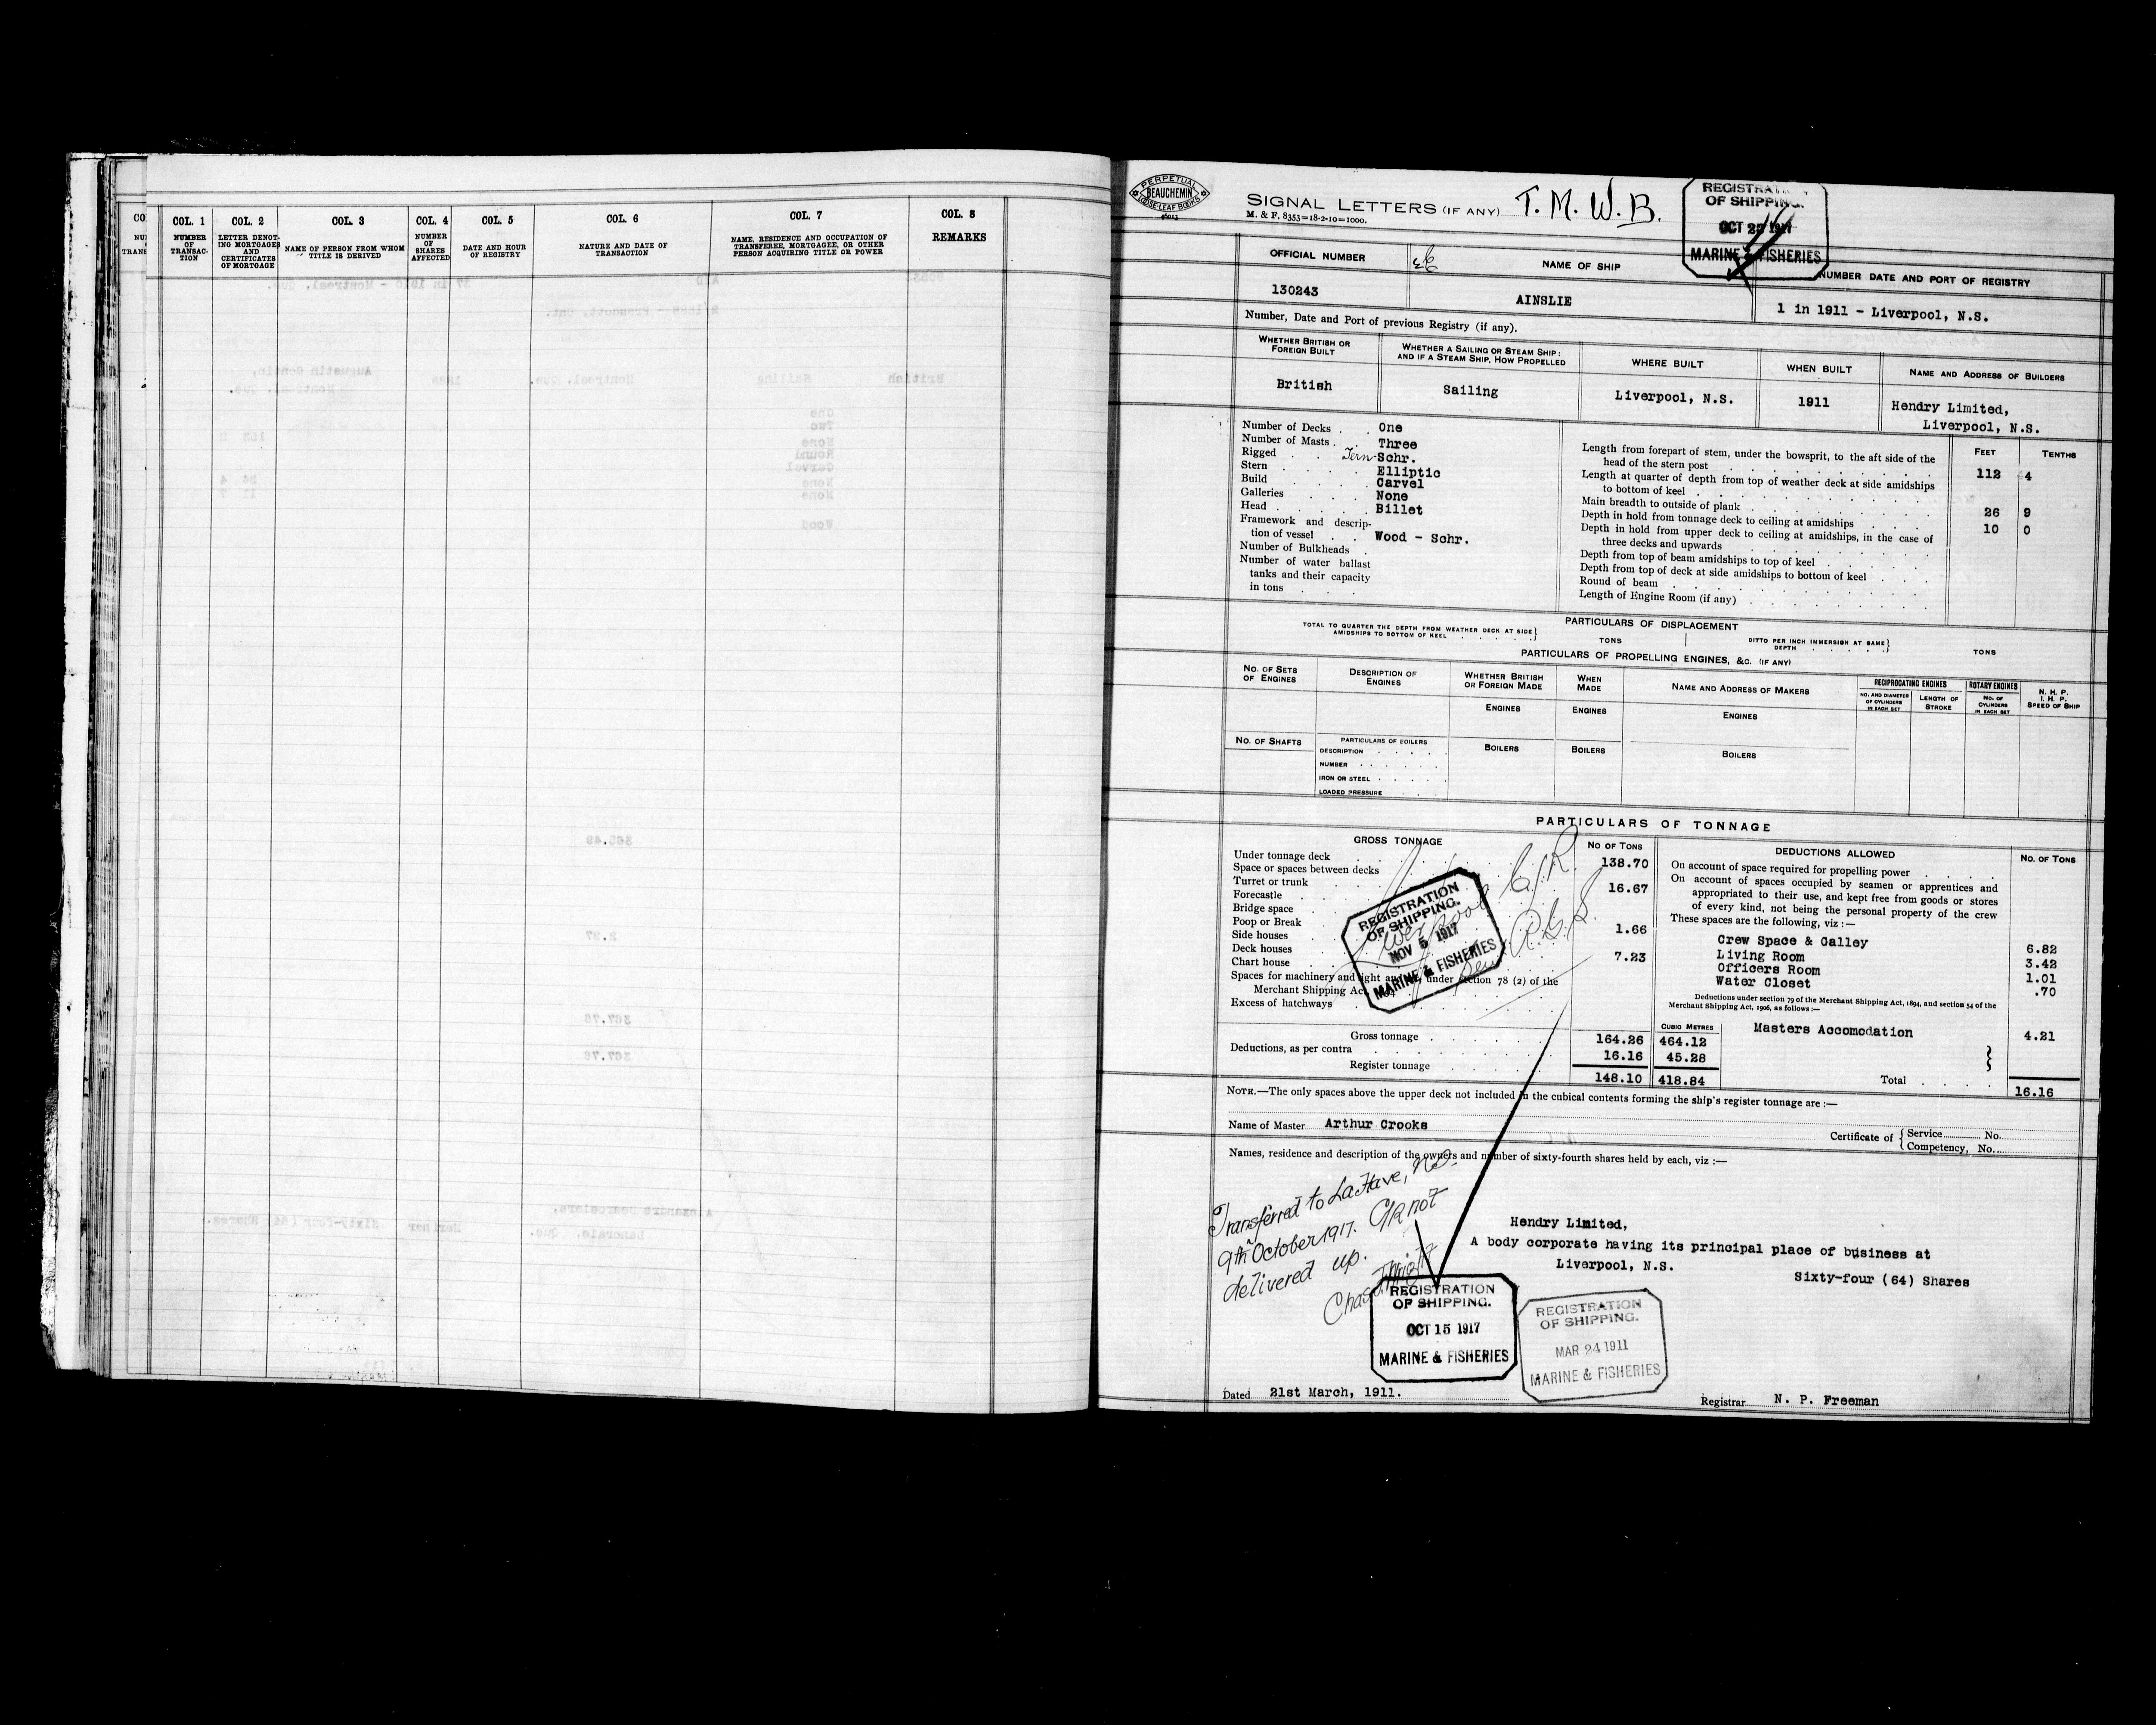 COL. 1
NUMBER
OF
TRANSAC-
TION
COL. 2
LETTER DENOT-
ING MORTGAGES
AND
CERTIFICATES
OF MORTGAGE
COL. 3
NAME OF PERSON FROM WHOM
TITLE IS DERIVED
COL. 4
NUMBER
OF
SHARES
AFFECTED
COL. 5
DATE AND HOUR
OF REGISTRY
COL. 6
NATURE AND DATE OF
TRANSACTION
COL. 7
NAME, RESIDENCE AND OCCUPATION OF
TRANSFEREE, MORTGAGEE, OR OTHER
PERSON ACQUIRING TITLE OR POWER
COL. 8
REMARKS
PERPETUAL
BEAUCHEMIN
LOOSE-LEAF BOOKS
SIGNAL LETTERS (IF ANY) T. M. W. B.
M. & F. 8353=18-2-10=1000.
REGISTRATION
OF SHIPPING.
OCT 1917
MARINE & FISHERIES
OFFICIAL NUMBER
NAME OF SHIP
NUMBER DATE AND PORT OF REGISTRY
130243
AINSLIE
1 in 1911 - Liverpool, N.S.
Number, Date and Port of previous Registry (if any).
WHETHER BRITISH OR
FOREIGN BUILT
WHETHER A SAILING OR STEAM SHIP:
AND IF A STEAM SHIP, HOW PROPELLED
WHERE BUILT
WHEN BUILT
NAME AND ADDRESS OF BUILDERS
British
Sailing
Liverpool, N.S.
1911
Hendry Limited,
Liverpool, N.S.
Number of Decks . . One
Number of Masts . . Three
Rigged . . Tern Schr.
Stern . . . . . Elliptic
Build . . . . . Carvel
Galleries . . . None
Head . . . . . Billet
Framework and descrip-
tion of vessel . . Wood - Schr.
Number of Bulkheads .
Number of water ballast
tanks and their capacity
in tons . . .
FEET TENTHS
Length from forepart of stem, under the bowsprit, to the aft side of the
head of the stern post 112 4
Length at quarter of depth from top of weather deck at side amidships
to bottom of keel
Main breadth to outside of plank 26 9
Depth in hold from tonnage deck to ceiling at amidships 10 0
Depth in hold from upper deck to ceiling at amidships, in the case of
three decks and upwards
Depth from top of beam amidships to top of keel
Depth from top of deck at side amidships to bottom of keel
Round of beam
Length of Engine Room (if any)
PARTICULARS OF DISPLACEMENT
TOTAL TO QUARTER THE DEPTH FROM WEATHER DECK AT SIDE
AMIDSHIPS TO BOTTOM OF KEEL
TONS
DITTO PER INCH IMMERSION AT SAME
DEPTH
TONS
PARTICULARS OF PROPELLING ENGINES, &c. (IF ANY)
NO. OF SETS
OF ENGINES
DESCRIPTION OF
ENGINES
WHETHER BRITISH
OR FOREIGN MADE
WHEN
MADE
NAME AND ADDRESS OF MAKERS
RECIPROCATING ENGINES
NO. AND DIAMETER
OF CYLINDERS
IN EACH SET
LENGTH OF
STROKE
ROTARY ENGINES
NO. OF
CYLINDERS
IN EACH SET
N. H. P.
I. H. P.
SPEED OF SHIP
ENGINES
ENGINES
ENGINES
NO. OF SHAFTS
PARTICULARS OF BOILERS
DESCRIPTION
NUMBER
IRON OR STEEL
LOADED PRESSURE
BOILERS
BOILERS
BOILERS
PARTICULARS OF TONNAGE
GROSS TONNAGE
NO OF TONS
Under tonnage deck 138.70
Space or spaces between decks
Turret or trunk 16.67
Forecastle
Bridge space
Poop or Break 1.66
Side houses
Deck houses 7.23
Chart house
Spaces for machinery and light and air, under section 78 (2) of the
Merchant Shipping Act, 1894
Excess of hatchways
CUBIC METRES
Gross tonnage 164.26 464.12
Deductions, as per contra 16.16 45.28
Register tonnage 148.10 418.84
REGISTRATION
OF SHIPPING.
NOV 5 1917
MARINE & FISHERIES
DEDUCTIONS ALLOWED
NO. OF TONS
On account of space required for propelling power
On account of spaces occupied by seamen or apprentices and
appropriated to their use, and kept free from goods or stores
of every kind, not being the personal property of the crew
These spaces are the following, viz :—
Crew Space & Galley 6.82
Living Room 3.42
Officers Room 1.01
Water Closet .70
Deductions under section 79 of the Merchant Shipping Act, 1894, and section 54 of the
Merchant Shipping Act, 1906, as follows :—
Masters Accomodation 4.21
Total 16.16
NOTE.—The only spaces above the upper deck not included in the cubical contents forming the ship's register tonnage are :—
Name of Master Arthur Crooks
Certificate of
Service No.
Competency, No.
Names, residence and description of the owners and number of sixty-fourth shares held by each, viz :—
Transferred to LaHave, N.S.
9th October 1917. C/R not
delivered up.
Hendry Limited,
A body corporate having its principal place of business at
Liverpool, N.S.
Sixty-four (64) Shares
REGISTRATION
OF SHIPPING.
OCT 15 1917
MARINE & FISHERIES
REGISTRATION
OF SHIPPING.
MAR 24 1911
MARINE & FISHERIES
Dated 21st March, 1911.
Registrar N. P. Freeman